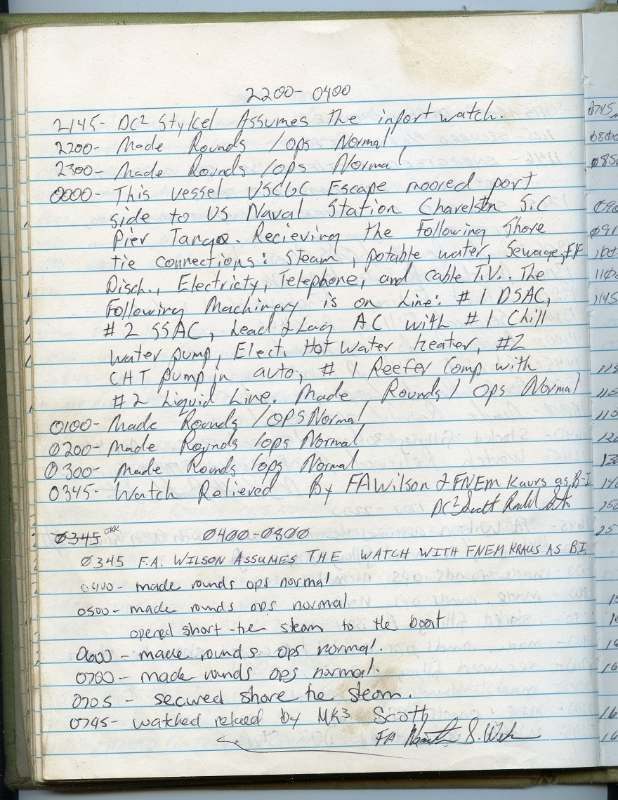 2200- 0400
2145- DC2 Stykel Assumes The inport watch.
2200- Made Rounds /ops Normal,
2300- Made Rounds /ops Normal
0000- This vessel USCGC Escape moored port
side to US Naval Station Charelston S.C
Pier Tangoe. Recieving the Following Shore
tie connections: Steam, potable water, Sewage, FF
Disch., Electricty, Telephone, and cable T.V.. The
Following Machinery is on Line: #1 DSAC,
#2 SSAC, Lead & Lag AC with #1 Chill
water pump, Elect. Hot water heater, #2
CHT pump in auto, #1 Reefer Comp with
#2 Liquid Line. Made Rounds / Ops Normal
0100- Made Rounds /OPS Normal
0200- Made Rounds /ops Normal
0300- Made Rounds /ops Normal
0345- Watch Relieved By FA Wilson & FNEM Kaurs as B-I
DC2 Scott
0345 0400-0800
0345 F.A. WILSON ASSUMES THE WATCH WITH FNEM KRAUS AS BI
0400- made rounds ops normal
0500- made rounds ops normal
opened short-tie steam to the boat
0600- made rounds ops normal.
0700- made rounds ops normal.
0705- secured shore tie steam.
0745- watched relived by MK3 Scott
FA S.